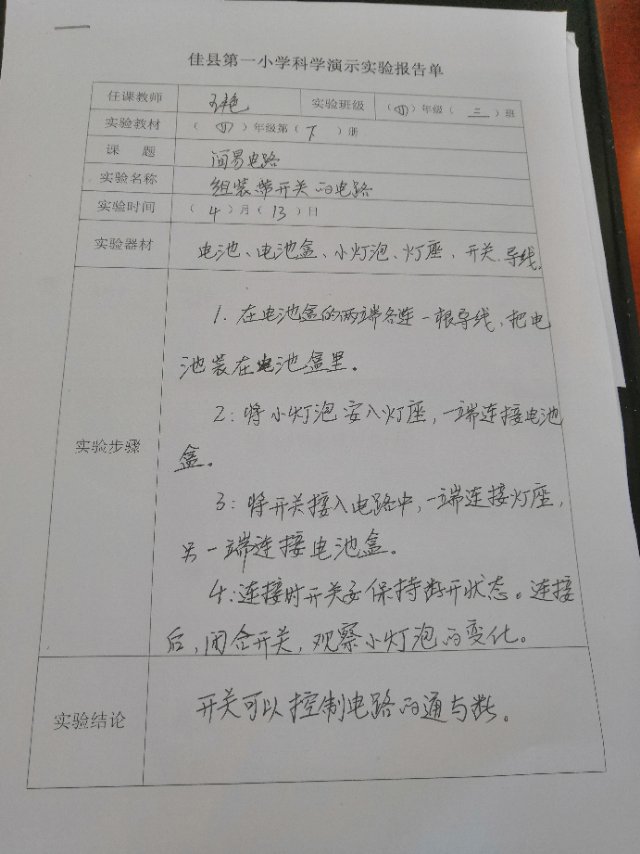 佳县第一小学科学演示实验报告单
任课教师 艳 实验班级 （四）年级（三）班
实验教材 （四）年级第（下）册
课题 简易电路
实验名称 组装带开关的电路
实验时间 （4）月（13）日
实验器材 电池、电池盒、小灯泡、灯座、开关、导线
1. 在电池盒的两端各连一根导线，把电
池装在电池盒里。
2：将小灯泡安入灯座，一端连接电池
盒。
实验步骤
3：将开关接入电路中，一端连接灯座，
另一端连接电池盒。
4：连接时开关要保持断开状态。连接
后，闭合开关，观察小灯泡的变化。
实验结论 开关可以控制电路的通与断。